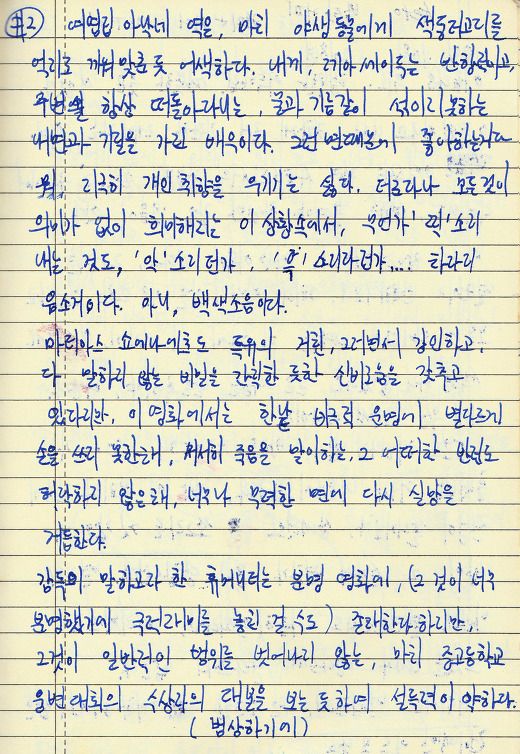 #2) 여염집 아낙네 역은, 마치 야생동물에게 색동저고리를
억지로 끼워 맞춘 듯 어색하다. 내게, 레아 세이두는 반항적이고,
주변을 항상 떠돌아다니는, 물과 기름같이 섞이지 못하는
내면과 기질을 가진 배우이다. 그런 면 때문에 좋아하는거다
뭐, 지극히 개인 취향을 우기기는 싫다. 더군다나 모든것이
의미가 없이 희미해지는 이 상황속에서, 무언가 '꽥' 소리
내는 것도, '악' 소리던가, '흑' 소리라던가.... 차라리
음소거이다. 아니, 백색소음이다.
마티아스 쇼에나에츠도 특유의 거친, 그러면서 강인하고,
다 말하지 않는 비밀을 간직한 듯한 신비로움을 갖추고
있다지만, 이 영화에서는 한낱 비극적 운명에 별다르게
손을 쓰지 못한채, 서서히 죽음을 맞이하는, 그 어떠한 반전도
허락하지 않은채, 너무나 무력한 면에 다시 실망을
거듭한다.
감독이 말하고자 한 휴머니티는 분명 영화에, (그것이 너무
분명했기에 극적재미를 놓친 걸 수도) 존재한다 하지만,
그것이 일반적인 범위를 벗어나지 않는, 마치 중고등학교
웅변대회의 수상작의 대본을 보는 듯하여 설득력이 약하다.
(범상하기에)